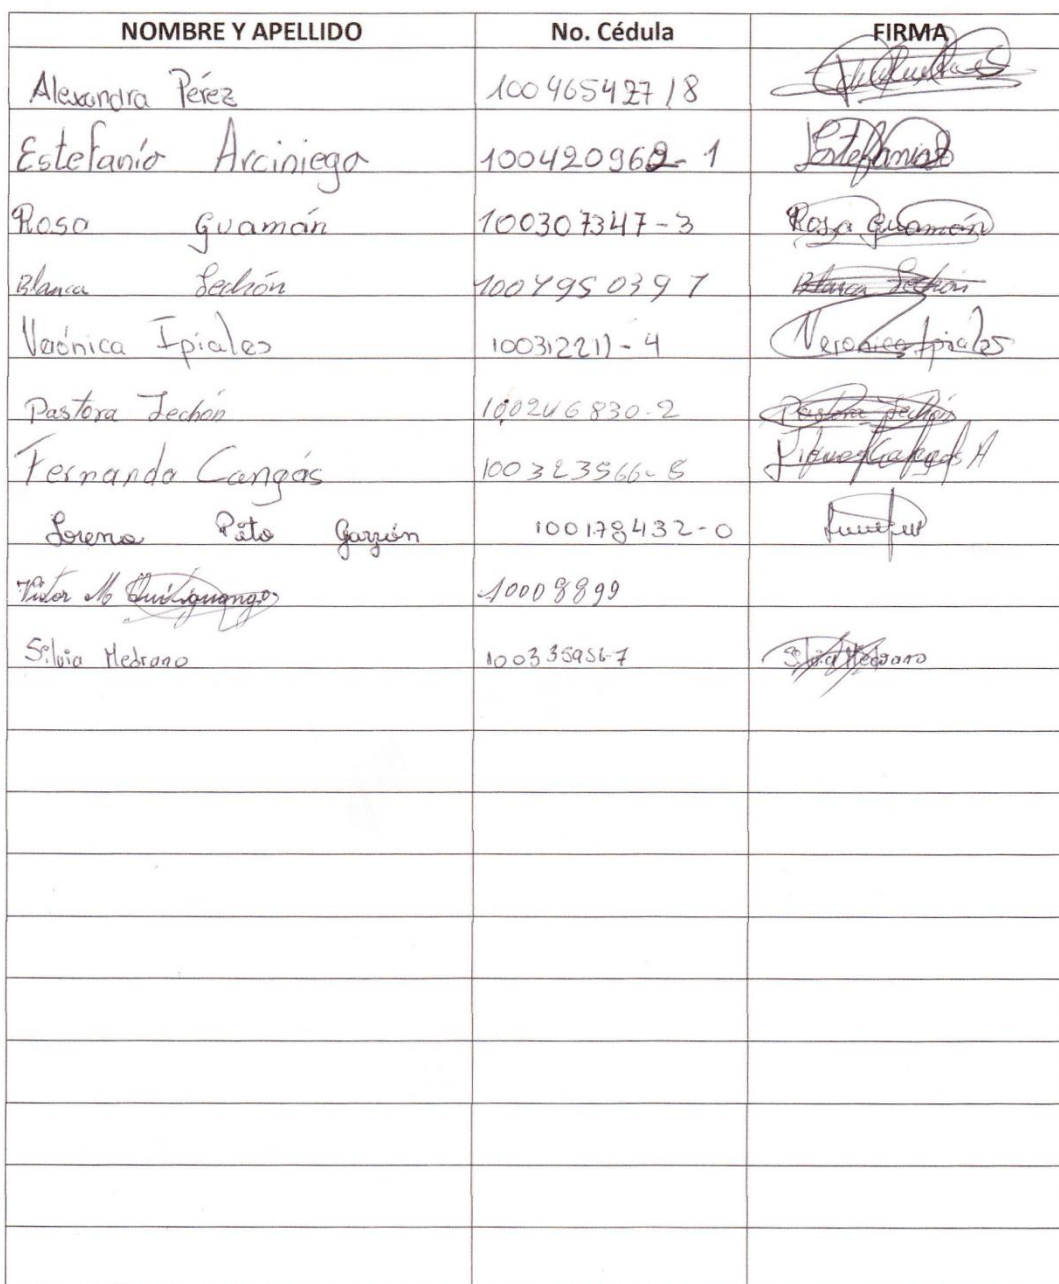 NOMBRE Y APELLIDO No. Cédula FIRMA
Alexandra Pérez 100465427 18
Estefanía Arciniega 100420960-1 Estefania
Rosa Guamán 100307347-3 Rosa Guamán
Blanca Lechón Blanca Lechón
Verónica Ipiales 100312211-4 Veronica Ipiales
Pastora Lechón 100246830-2 Pastora Lechón
Fernanda Cangás
Lorena Pato Garzón 100178432-0
Victor M Quilquango 10008899
Silvia Medrano 100335956-7 Silvia Medrano